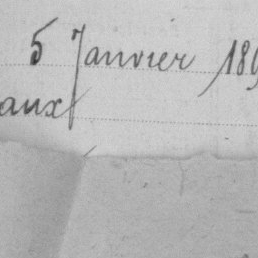 5 Janvier 189
aux